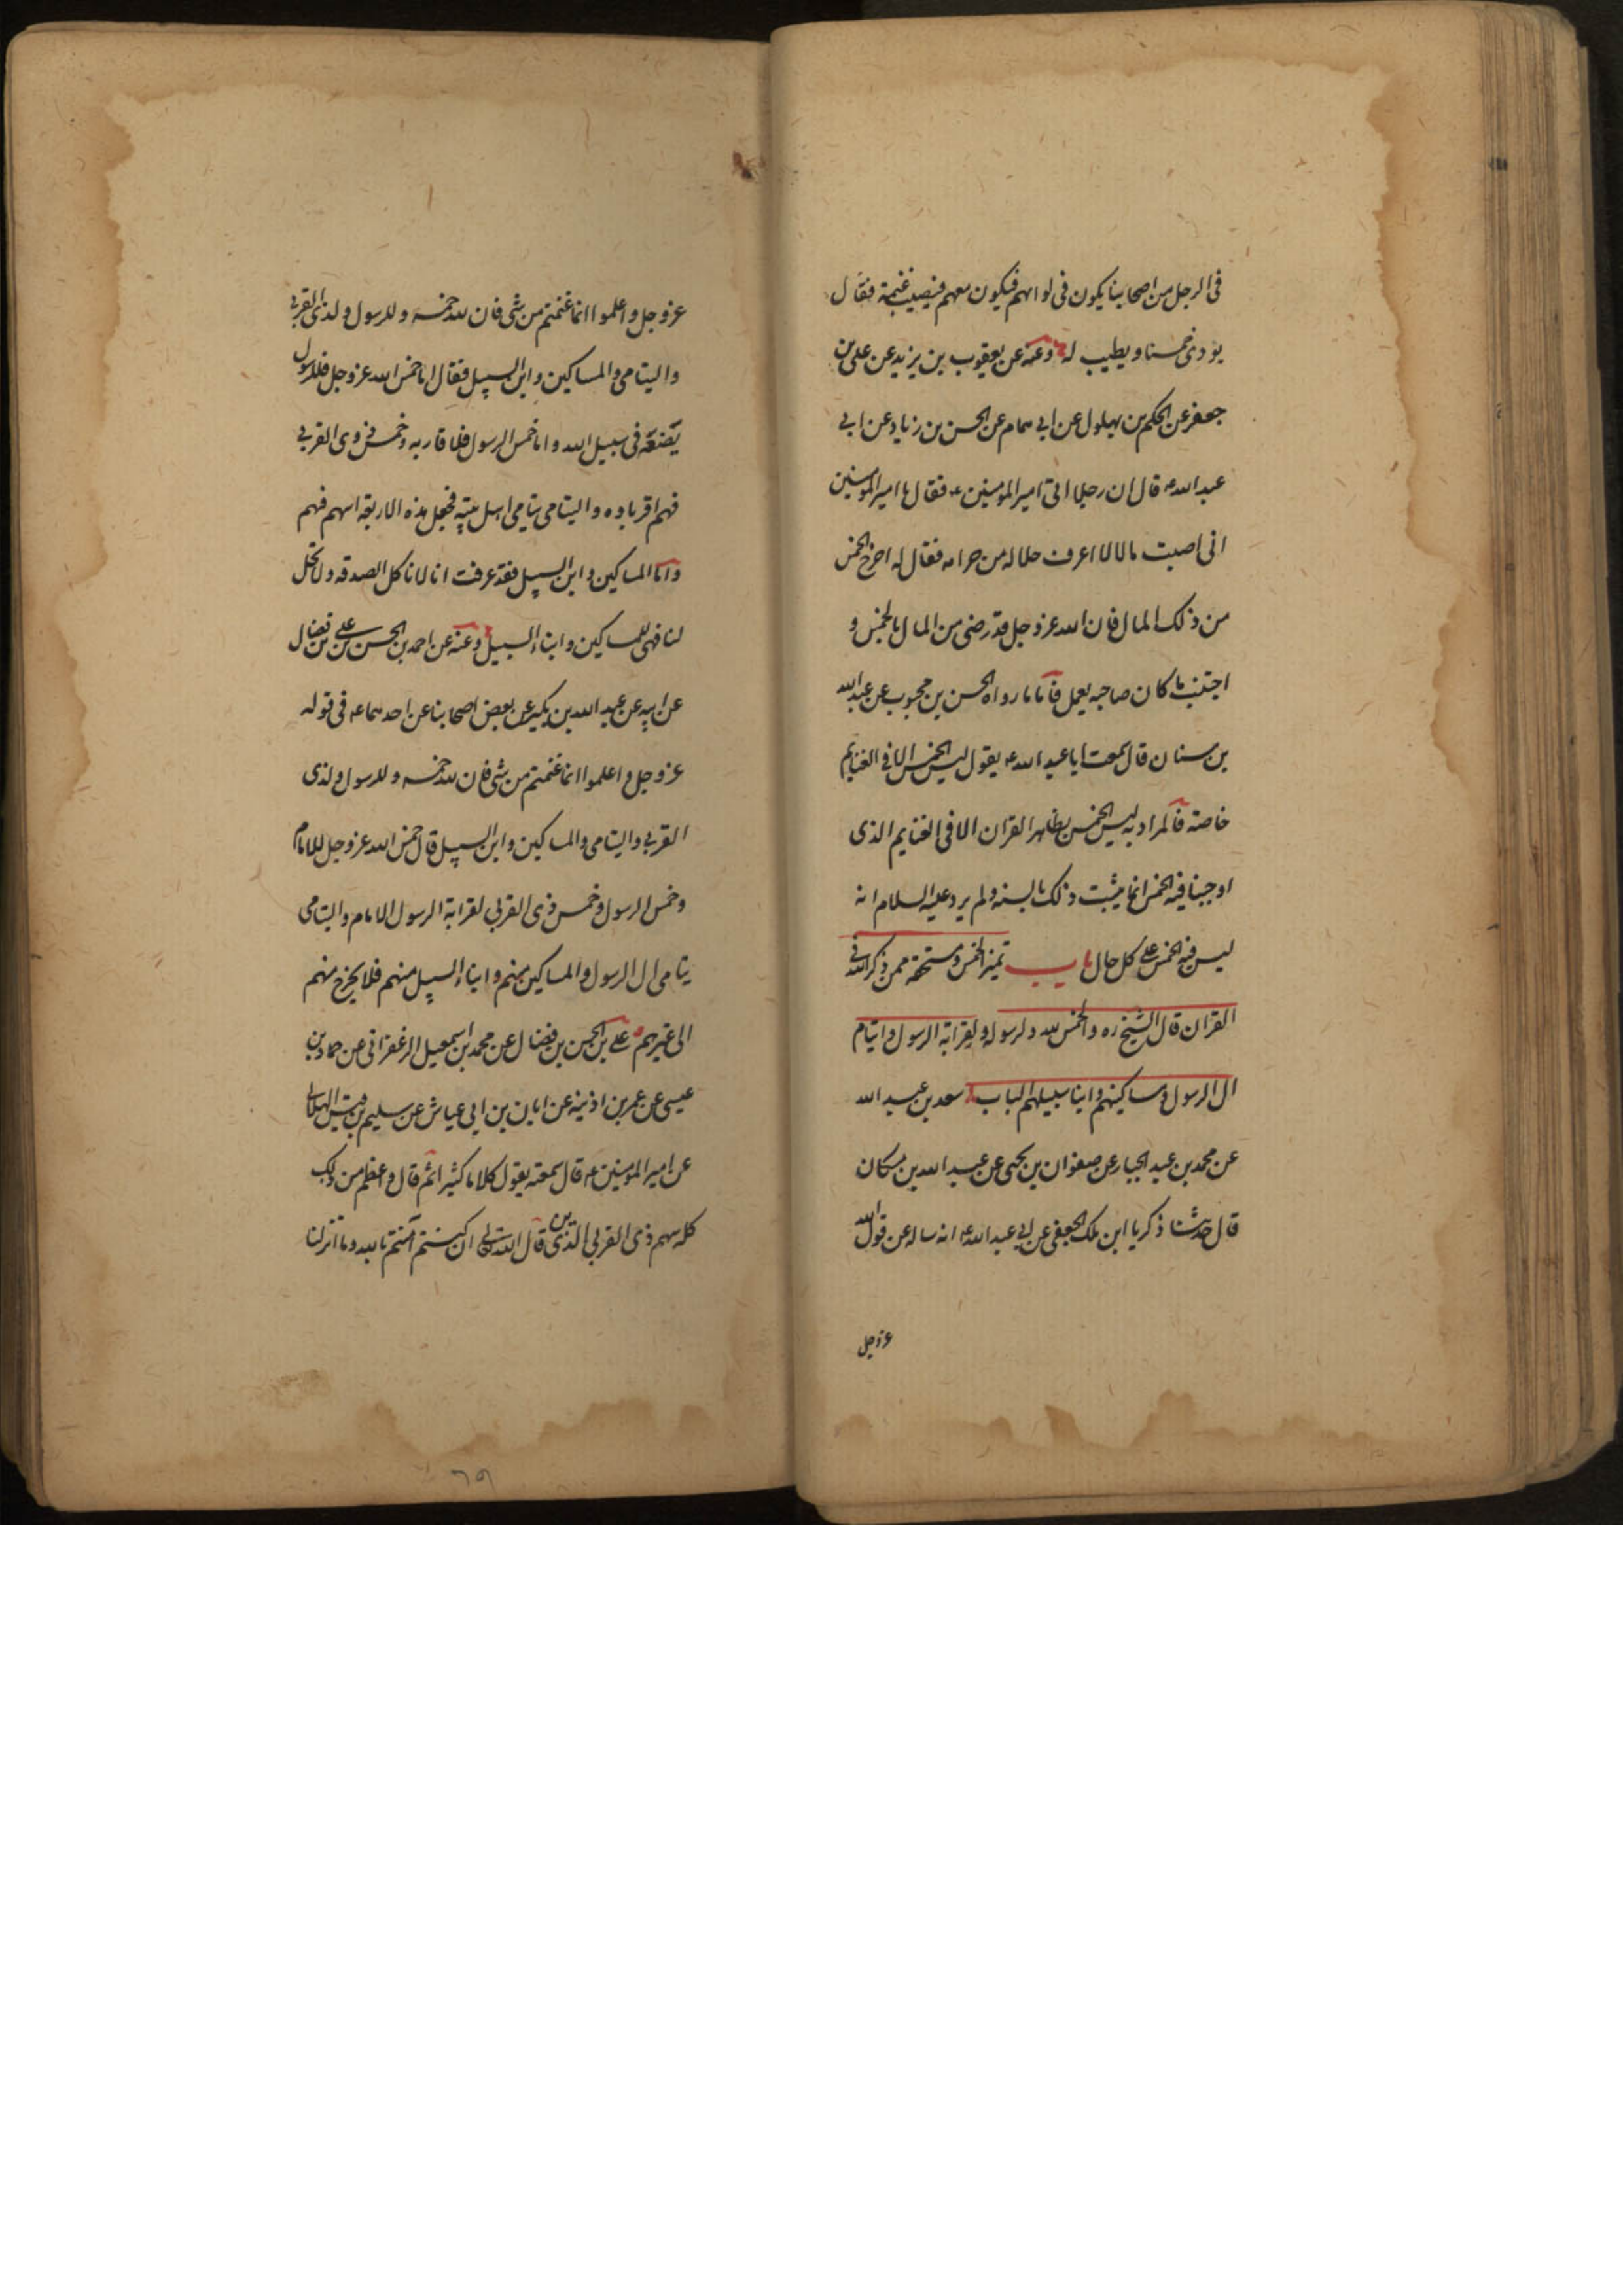 فى الرجل من اصحابنا يكون فى لوائهم فيكون معهم فيصيب غنيمة فقال
يودى خمسنا و يطيب له وعنه عن يعقوب بن يزيد عن على بن
جعفر عن الحكم بن بهلول عن ابى همام عن الحسن بن زياد عن ابى
عبد الله ع قال ان رجلا اتى امير المومنين ع فقال يا امير المومنين
انى اصبت مالا لا اعرف حلاله من حرامه فقال له اخرج الخمس
من ذلك المال فان الله عز و جل قد رضى من المال بالخمس و
اجتنب ما كان صاحبه يعمل فاما ما رواه الحسن بن محبوب عن عبد الله
بن سنان قال سمعت ابا عبد الله ع يقول ليس الخمس الا فى الغنايم
خاصة فالمراد به ليس الخمس بظاهر القران الا فى الغنايم الذى
اوجبنا فيه الخمس انما يثبت ذلك بالسنه ولم يرد عليه السلام انه
ليس فيه الخمس على كل حال باب تميز الخمس و مستحقه ممن ذكر الله فى
القران قال الشيخ ره و الخمس لله و لرسوله و لقرابة الرسول و ايتام
ال الرسول و مساكينهم و ابنا سبيلهم الباب سعد بن عبد الله
عن محمد بن عبد الجبار عن صفوان بن يحيى عن عبد الله بن مسكان
قال حدثنا ذكريا ابن ملك الجعفى عن ابى عبد الله ع انه ساله عن قول الله
عز و جل
عز و جل و اعلموا انما غنمتم من شى فان لله خمسه و للرسول و لذى القربى
و اليتامى و المساكين و ابن السبيل فقال اما خمس الله عز و جل فللرسول
يضعه فى سبيل الله و اما خمس الرسول فلاقاربه و خمس ذوى القربى
فهم اقرباوه و اليتامى يتامى اهل بيته فجعل هذه الاربعة اسهم فهم
و اما المساكين و ابن السبيل فقد عرفت انا لا ناكل الصدقه و لا تحل
لنا فهى للمساكين و ابناء السبيل وعنه عن احمد بن الحسن بن على بن فضال
عن ابيه عن عبد الله بن بكير عن بعض اصحابنا عن احدهما ع فى قوله
عز و جل و اعلموا انما غنمتم من شى فان لله خمسه و للرسول و لذى
القربى و اليتامى و المساكين و ابن السبيل قال خمس الله عز و جل للامام
و خمس الرسول و خمس ذى القربى لقرابة الرسول الامام و اليتامى
يتامى ال الرسول و المساكين منهم و ابناء السبيل منهم فلا يخرج منهم
الى غيرهم على بن الحسن بن فضال عن محمد بن اسمعيل الزعفرانى عن حماد بن
عيسى عن عمر بن اذينه عن ابان بن ابى عياش عن سليم بن قيس الهلالى
عن امير المومنين ع قال سمعته يقول كلاما كثيرا ثم قال و اعظم من ذلك
كله سهم ذى القربى الذين قال الله تعالى ان كنتم آمنتم بالله و ما انزلنا
٦٩